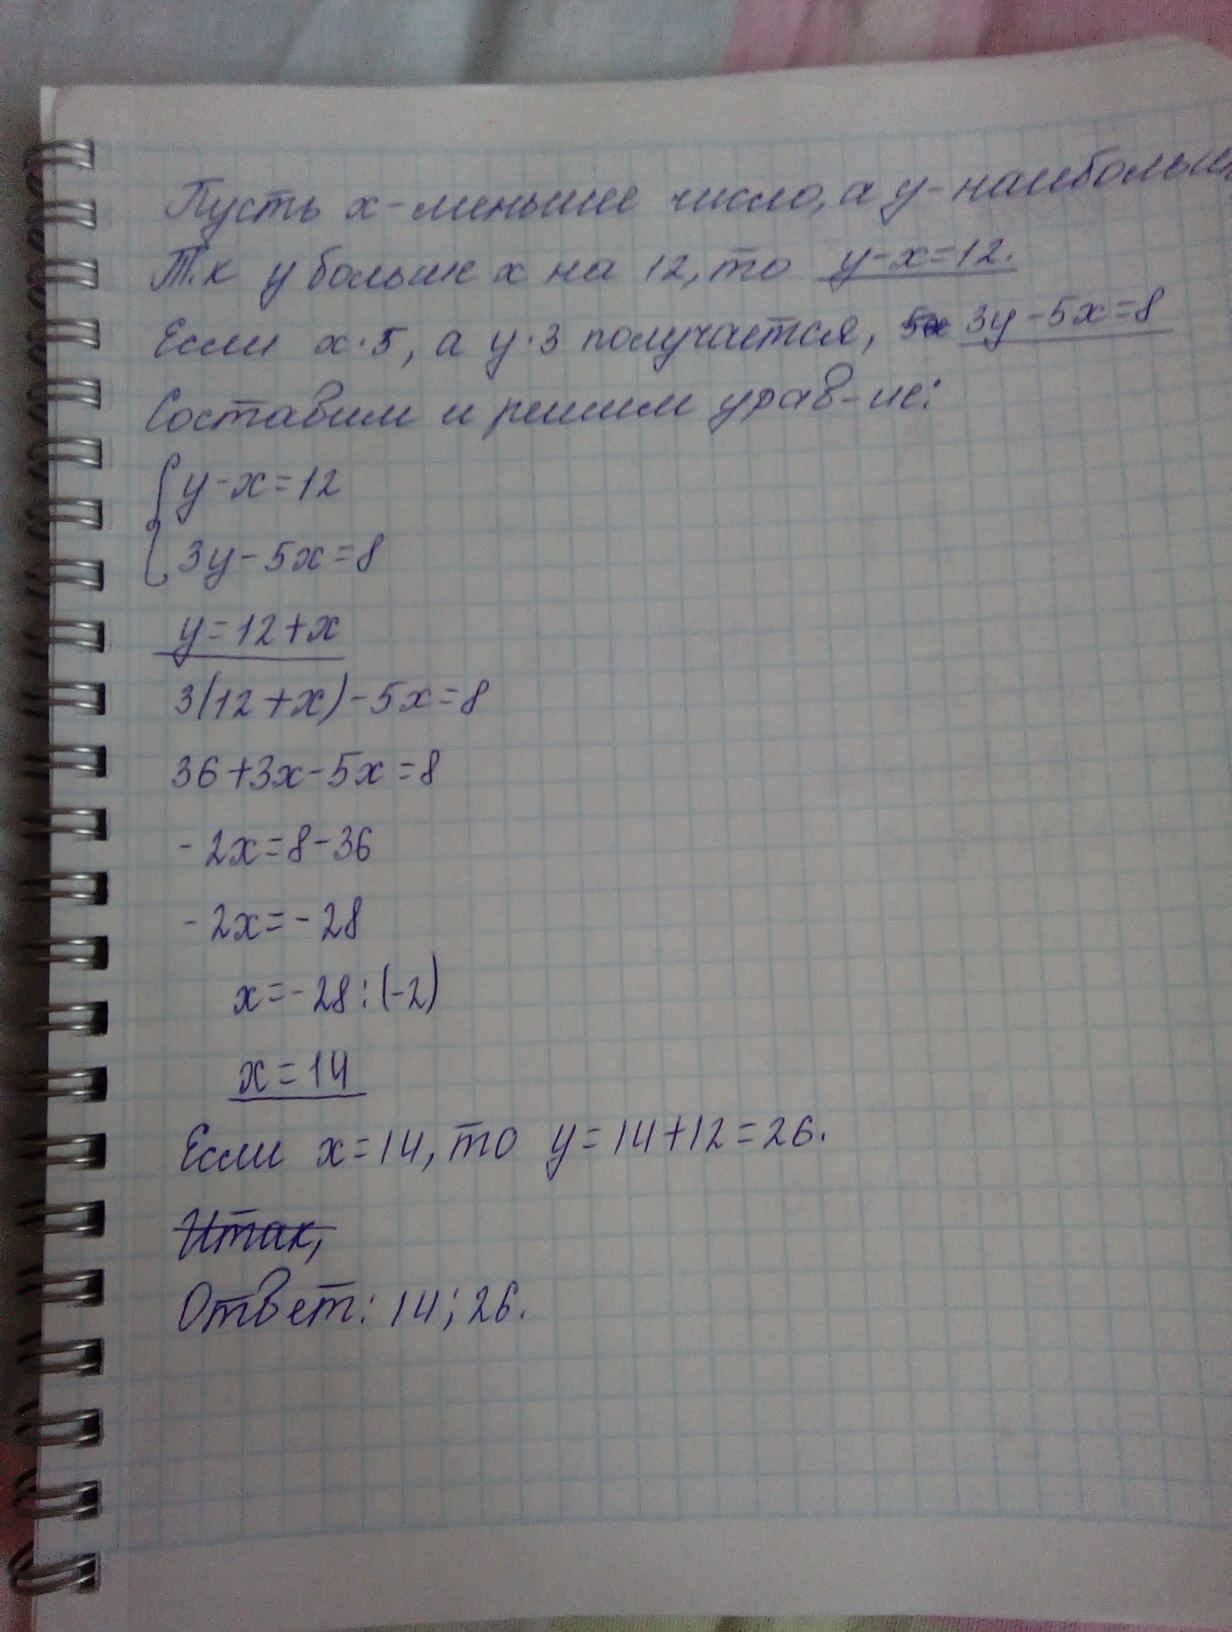 Пусть x-меньшее число, а y-наибольш
Т.к y больше x на 12, то y-x=12.
Если x·5, а y·3 получается, 5x 3y-5x=8
Составим и решим урав-ие:
y-x=12
3y-5x=8
y=12+x
3(12+x)-5x=8
36+3x-5x=8
-2x=8-36
-2x=-28
x=-28:(-2)
x=14
Если x=14, то y=14+12=26.
Итак,
Ответ: 14; 26.